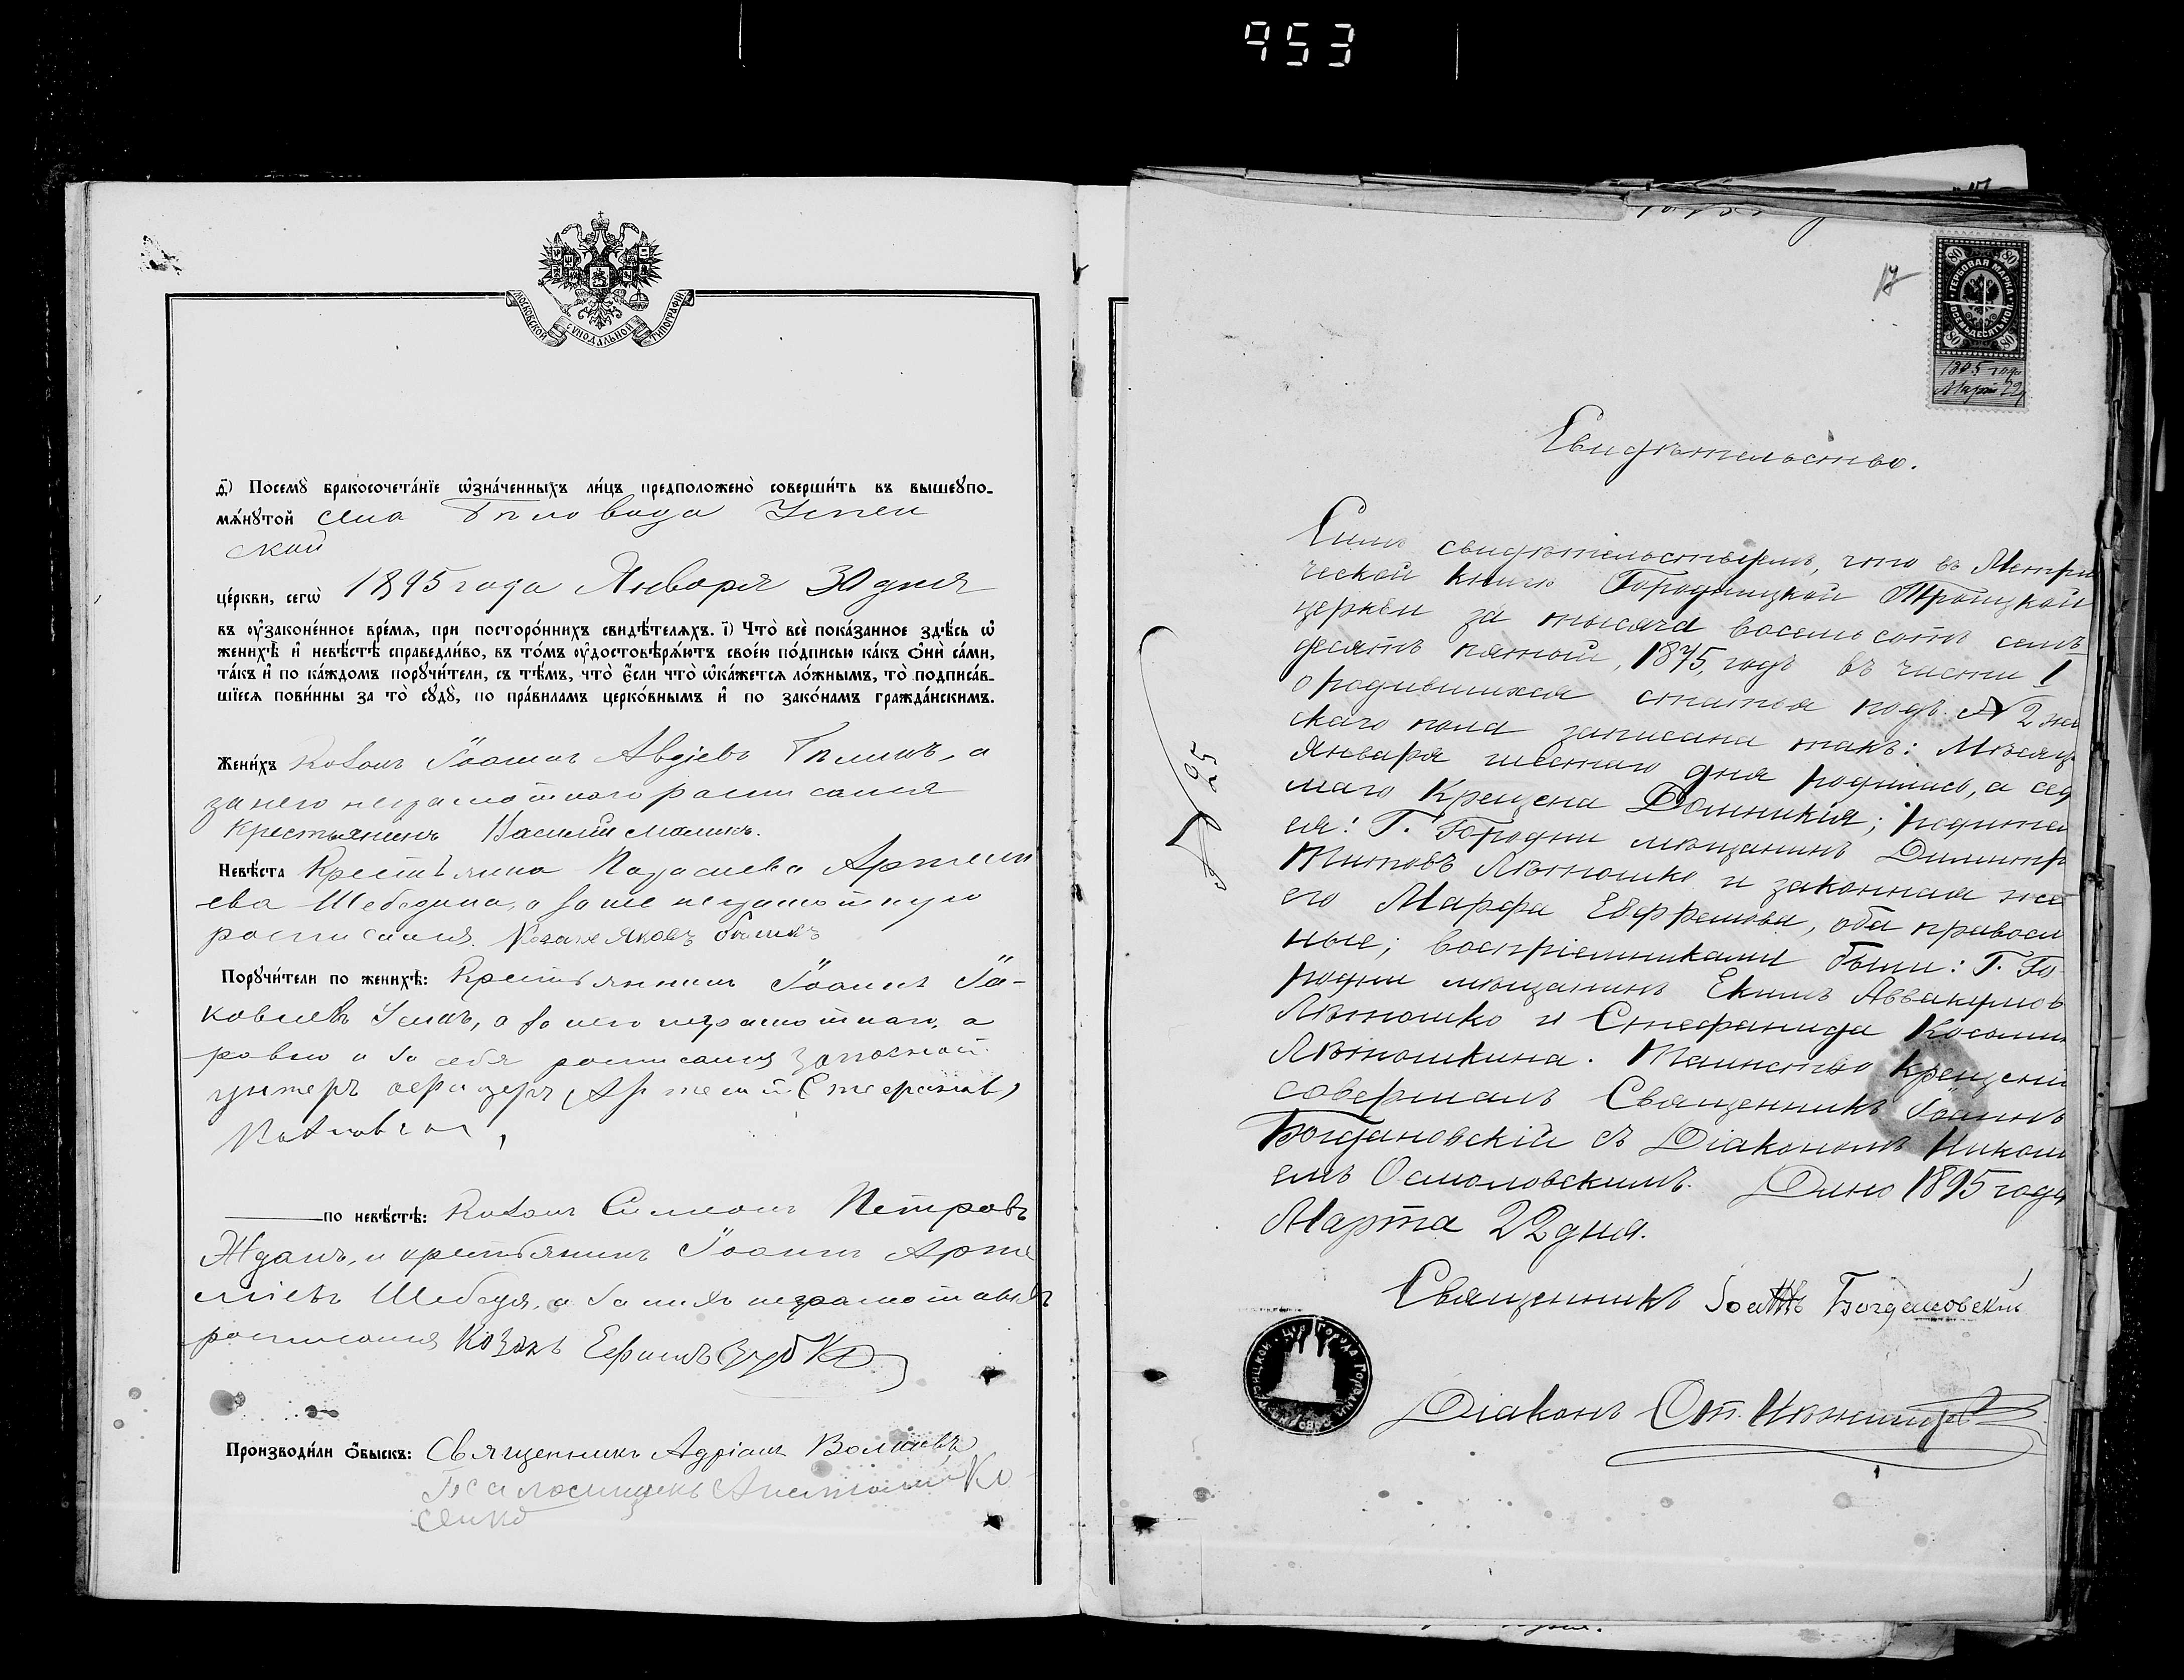 953
МОСКОВСКОЙ СѴНОДАЛЬНОЙ ТИПОГРАФІИ
д҃) Посемꙋ бракосочета́нїе ѡ҆зна́ченныхъ ли́цъ предположено̀ соверши́ть въ вышеꙋпо-
мѧ́нꙋтой села Бѣловода Успен
ской
це́ркви, сегѡ̀ 1895 года Января 30 дня
въ ᲂу҆зако́ненное вре́мѧ, при посторо́ннихъ свидѣ́телѧхъ. і҃) Что̀ всѐ пока́занное здѣ́сь ѡ҆
женихѣ̀ и҆ невѣ́стѣ справедли́во, въ то́мъ ᲂу҆достовѣрѧ́ютъ свое́ю по́дписью ка́къ ѻ҆нѝ са́ми,
та́къ и҆ по ка́ждомъ порꙋчи́тели, съ тѣ́мъ, что̀ є҆́сли что̀ ѡ҆ка́жетсѧ ло́жнымъ, то̀ подписа́в-
шїесѧ пови́нны за то̀ сꙋдꙋ̀, по пра́виламъ церко́внымъ и҆ по зако́намъ гражда́нскимъ.
Жени́хъ Козакъ Іоаннъ Авдіевъ Бѣликъ, а
за него неграмотного росписался
Крестьянинъ Василій Маликъ.
Невѣ́ста Крестьянка Артеми
ева Шебедина, а за нее неграмотную
росписался Козакъ Яковъ
Порꙋчи́тели по женихѣ̀: Крестьянинъ Іоаннъ Іа-
ковлевъ а за него неграмотнаго, а
ровно и за себя росписался запасной
унтеръ офицеръ Артемій Стефановъ
по невѣ́стѣ: Козакъ Симеонъ Петровъ
Жданъ, и крестьянинъ Іоаннъ Арте
міевъ Шебедя, а за нихъ неграмотныхъ
росписался Козакъ Ефимъ Зубко
Производи́ли ѻ҆́быскъ: Священникъ Адріанъ
Псаломщикъ Анатолій
17
ГЕРБОВАЯ МАРКА
ОСЕМЬДЕСЯТЪ КОП.
80 80 80 80
1895 года
Марта 22 д
Свидѣтельство.
№ 65
Симъ свидѣтельствуемъ, что въ Метри
ческой книгѣ Городницкой Троицкой
церкви за тысяча восемьсотъ семь
десятъ пятый, 1875, годъ въ части I
о родившихся статья подъ № 2 жен
скаго пола записана такъ: Мѣсяца
Января шестого дня родилась, а сед
маго Крещена Домникія; родители
ея: Г. Городни мѣщанинъ Димитр
Титовъ Лѣтошко и законная жена
его Марфа Ефремова, оба правосл
ные; воспріемниками были: Г. Го
родни мѣщанинъ Екимъ Аввакумов
Лѣтошко и Стефанида Косьмин
Лѣтошкина. Таинство Крещенія
совершалъ Священникъ Іоаннъ
Богдановскій съ Діакономъ Никола
емъ Осмоловскимъ. Дано 1895 года
Марта 22 дня.
Священникъ Іоаннъ Богдановскій
Діаконъ